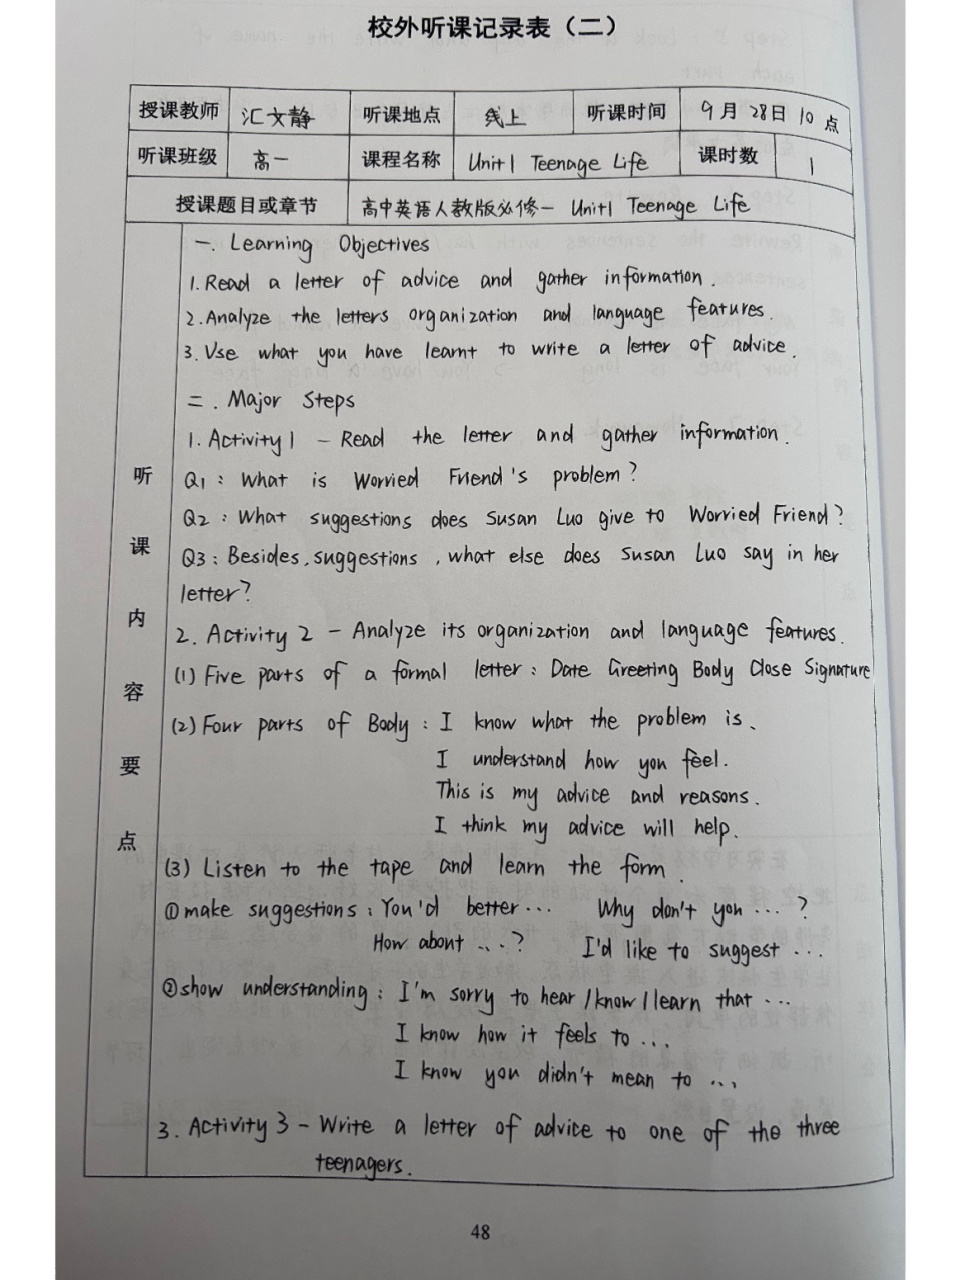 校外听课记录表（二）
授课教师 汇文静 听课地点 线上 听课时间 9月28日10点
听课班级 高一 课程名称 Unit1 Teenage Life 课时数 1
授课题目或章节 高中英语人教版必修一 Unit1 Teenage Life
听课内容要点
一. Learning Objectives
1. Read a letter of advice and gather information.
2. Analyze the letters organization and language features.
3. Use what you have learnt to write a letter of advice.
二. Major Steps
1. Activity 1 – Read the letter and gather information.
Q1: What is Worried Friend's problem?
Q2: What suggestions does Susan Luo give to Worried Friend?
Q3: Besides, suggestions, what else does Susan Luo say in her
letter?
2. Activity 2 – Analyze its organization and language features.
(1) Five parts of a formal letter: Date Greeting Body Close Signature
(2) Four parts of Body: I know what the problem is.
I understand how you feel.
This is my advice and reasons.
I think my advice will help.
(3) Listen to the tape and learn the form.
①make suggestions: You'd better... Why don't you ...?
How about ...? I'd like to suggest ...
②show understanding: I'm sorry to hear/know/learn that ...
I know how it feels to ...
I know you didn't mean to ...
3. Activity 3 – Write a letter of advice to one of the three
teenagers.
48